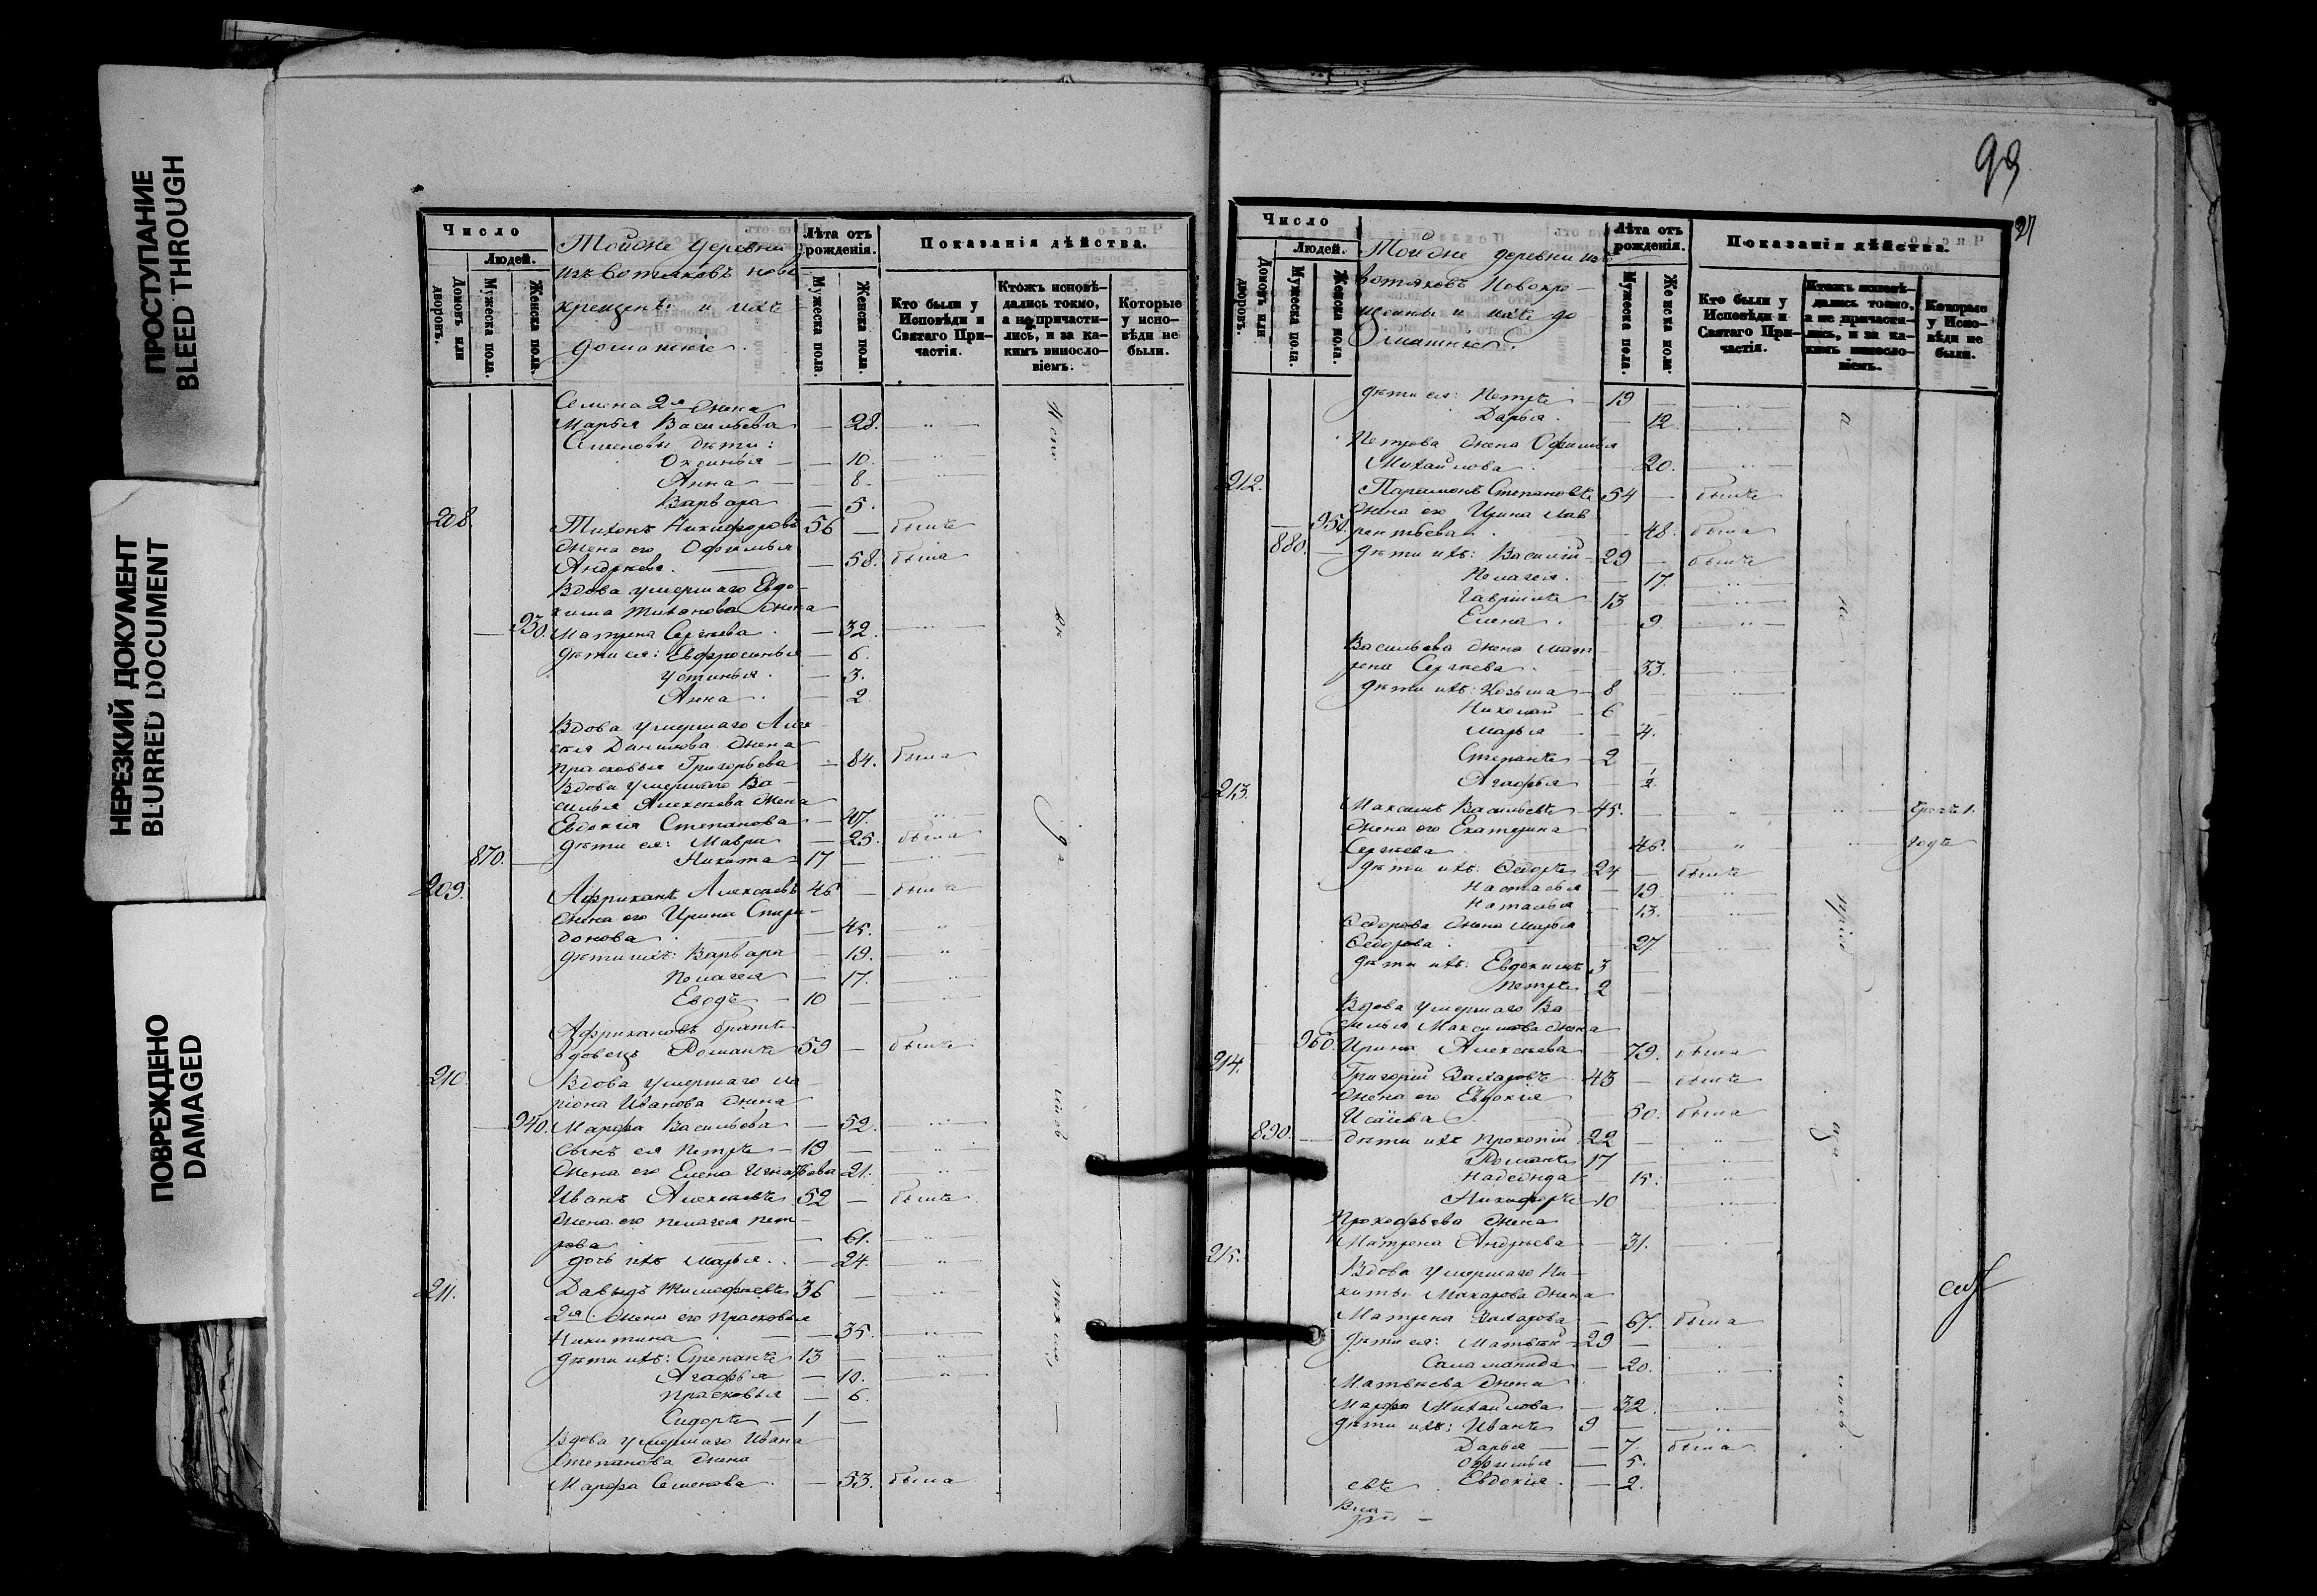 ПРОСТУПАНИЕ
BLEED THROUGH
НЕРЕЗКИЙ ДОКУМЕНТ
BLURRED DOCUMENT
ПОВРЕЖДЕНО
DAMAGED
Число
Людей.
Домовъ или дворовъ.
Мужеска пола.
Женска пола.
Тойже деревни
изъ вотяковъ ново
крещенъ и ихъ
домашніе.
Лѣта отъ рожденія.
Мужеска пола.
Женска пола.
Показанія дѣйства.
Кто были у Исповѣди и Святаго При-
частія.
Ктожъ исповѣ-
дались токмо,
а не причасти-
лись, и за ка-
кимъ винсло-
віемъ.
Которые
у испо-
вѣди не
были.
Семена 2я жена
Марья Васильева — 28.
Семеновы дѣти:
Оксинья — 10.
Анна — 8.
Варвара — 5.
208. Тихонъ Никифоровъ 56 — былъ
жена его Офимья
Андреева. — 58. была
Вдова умершаго Евдо-
кима Тихонова жена
930. Матрена Сергѣева — 32.
дѣти ея: Евфросинья — 6.
Устинья — 3.
Анна — 2.
Вдова умершаго Алек-
сѣя Данилова жена
Прасковья Григорьева — 84. была
Вдова умершаго Ва-
силья Алексѣева жена
Евдокія Степанова — 47.
дѣти ея: Мавра — 25. была
870. Никита — 17 —
209. Африканъ Алексѣевъ 46 — былъ
жена его Ирина Спири-
донова — 45.
дѣти ихъ: Варвара — 19.
Пелагея — 17.
Еводъ — 10 —
Африкановъ братъ
вдовецъ Романъ 59 — былъ
210. Вдова умершаго Ла-
ріона Иванова жена
940. Марфа Васильева — 52.
сынъ ея Петръ — 19 —
жена его Елена Игнатьева 21.
Иванъ Алексѣевъ 52 — былъ
жена его Пелагея Пет-
рова — 61.
дочь ихъ Марья — 24.
211. Давыдъ Тимофѣевъ 36 —
2я жена его Прасковья
Никитина — 35.
дѣти ихъ: Степанъ 13 —
Агафья — 10.
Прасковья — 6.
Сидоръ — 1 —
Вдова умершаго Ивана
Степанова жена
Марфа Семенова — 53. была
99
Число
Людей.
Домовъ или дворовъ.
Мужеска пола.
Женска пола.
Тойже деревни изъ
вотяковъ новокре-
щенны и ихъ до
машніе.
Лѣта отъ рожденія.
Мужеска пола.
Женска пола.
Показанія дѣйства.
Кто были у Исповѣди и Святаго При-
частія.
Ктожъ исповѣ-
дались токмо,
а не причасти-
лись, и за ка-
кимъ винсло-
віемъ.
Которые
у Испо-
вѣди не
были.
дѣти ея: Петръ — 19 —
Дарья — 12.
Петрова жена Офимья
Михайлова — 20.
212. Парамонъ Степановъ 54 — былъ
жена его Ирина Лав-
950. рентьева — 48. была
880. дѣти ихъ: Василій — 29 — былъ
Пелагея — 17.
Гавріилъ 13 —
Елена — 9.
Васильева жена Мат-
рена Сергѣева — 33.
дѣти ихъ: Козьма — 8
Николай — 6
Марья — 4.
Степанъ — 2
Агафья — 1/2.
213. Максимъ Васильевъ 45.
жена его Екатерина
Сергѣева 46. годъ
дѣти ихъ: Ѳедоръ 24 — былъ
Настасья — 19
Наталья — 13.
Ѳедорова жена Марья
Ѳедорова 27
дѣти ихъ: Евдокимъ 3 —
Петръ 2 —
Вдова умершаго Ва-
силья Максимова жена
960. Ирина Алексѣева 79. была
214. Григорій Захаровъ 43 — былъ
жена его Евдокія
Исаіева — 50. была
890. дѣти ихъ Прокопій 22 —
Романъ 17 —
Надежда — 15.
Никифоръ 10
Прокофьева жена
Матрена Андрѣева — 31.
215. Вдова умершаго Ни-
киты Макарова жена
Матрена Захарова — 67. была
дѣти ея: Матвѣй — 29 —
Саламанида — 20.
Матвѣева жена
Марфа Михайлова — 32.
дѣти ихъ: Иванъ 9 —
Дарья — 7. была
Офимья — 5.
Евдокія — 2.